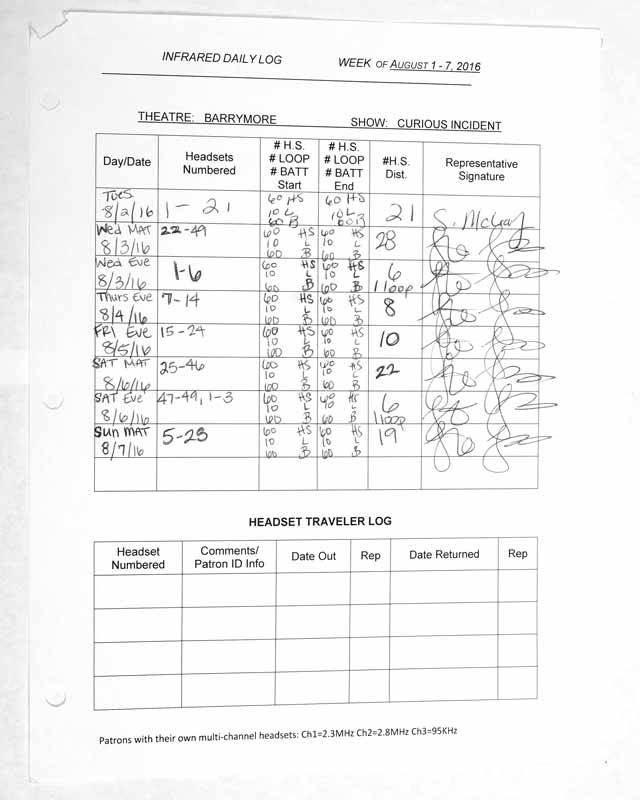 INFRARED DAILY LOG WEEK OF AUGUST 1 - 7, 2016
THEATRE: BARRYMORE SHOW: CURIOUS INCIDENT
Day/Date Headsets Numbered # H.S. # LOOP # BATT Start # H.S. # LOOP # BATT End #H.S. Dist. Representative Signature
Tues 8/2/16 1 - 21 60 HS 10 L 60 B 60 HS 10 L 60 B 21
Wed MAT 8/3/16 22-49 60 HS 10 L 60 B 60 HS 10 L 60 B 28
Wed Eve 8/3/16 1-6 60 HS 10 L 60 B 60 HS 10 L 60 B 6 1 loop
Thurs Eve 8/4/16 7-14 60 HS 10 L 60 B 60 HS 10 L 60 B 8
FRI Eve 8/5/16 15-24 60 HS 10 L 60 B 60 HS 10 L 60 B 10
SAT MAT 8/6/16 25-46 60 HS 10 L 60 B 60 HS 10 L 60 B 22
SAT Eve 8/6/16 47-49, 1-3 60 HS 10 L 60 B 60 HS 10 L 60 B 6 1 loop
Sun MAT 8/7/16 5-23 60 HS 10 L 60 B 60 HS 10 L 60 B 19
HEADSET TRAVELER LOG
Headset Numbered Comments/ Patron ID Info Date Out Rep Date Returned Rep
Patrons with their own multi-channel headsets: Ch1=2.3MHz Ch2=2.8MHz Ch3=95KHz